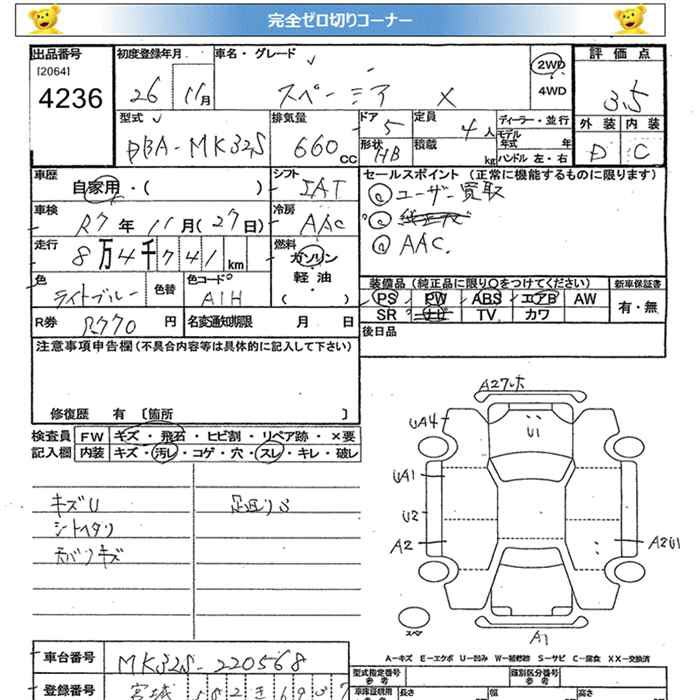 完全ゼロ切りコーナー
出品番号 初度登録年月 車名・グレード 評価点
[2064] 2WD
4236 26 11月 スペーシア X 4WD 3.5
型式 排気量 ドア 定員 ディーラー・並行 外装 内装
DBA-MK32S 660cc 5 4人 モデル年式 年 D C
形状 HB 積載 kg ハンドル 左・右
車歴 シフト セールスポイント(正常に機能するものに限ります)
自家用・( ) IAT ユーザー買取
車検 冷房
R7年11月(27日) AAC AAC.
走行 燃料
8万4千741km ガソリン
軽油
( )
色 色替 色コードNo 装備品(純正品に限り○をつけてください) 新車保証書
ライトブルー A1H PS PW ABS エアB AW 有・無
SR ナビ TV カワ
R券 R770円 名変通知期限 月 日 後日品
注意事項申告欄(不具合内容等は具体的に記入して下さい)
修復歴 有〔箇所 〕
検査員 FW キズ・飛石・ヒビ割・リペア跡・×要
記入欄 内装 キズ・汚レ・コゲ・穴・スレ・キレ・破レ
キズU
シートヘタリ
UA4 U1
UA1
U2
A2
A1
スペア
A-キズ E-エクボ U-凹み W-補修跡 S-サビ C-腐食 XX-交換済
車台番号 MK32S-220568
登録番号 宮城
型式指定番号 類別区分番号
参考 参考
車庫証明用 長さ 幅 高さ